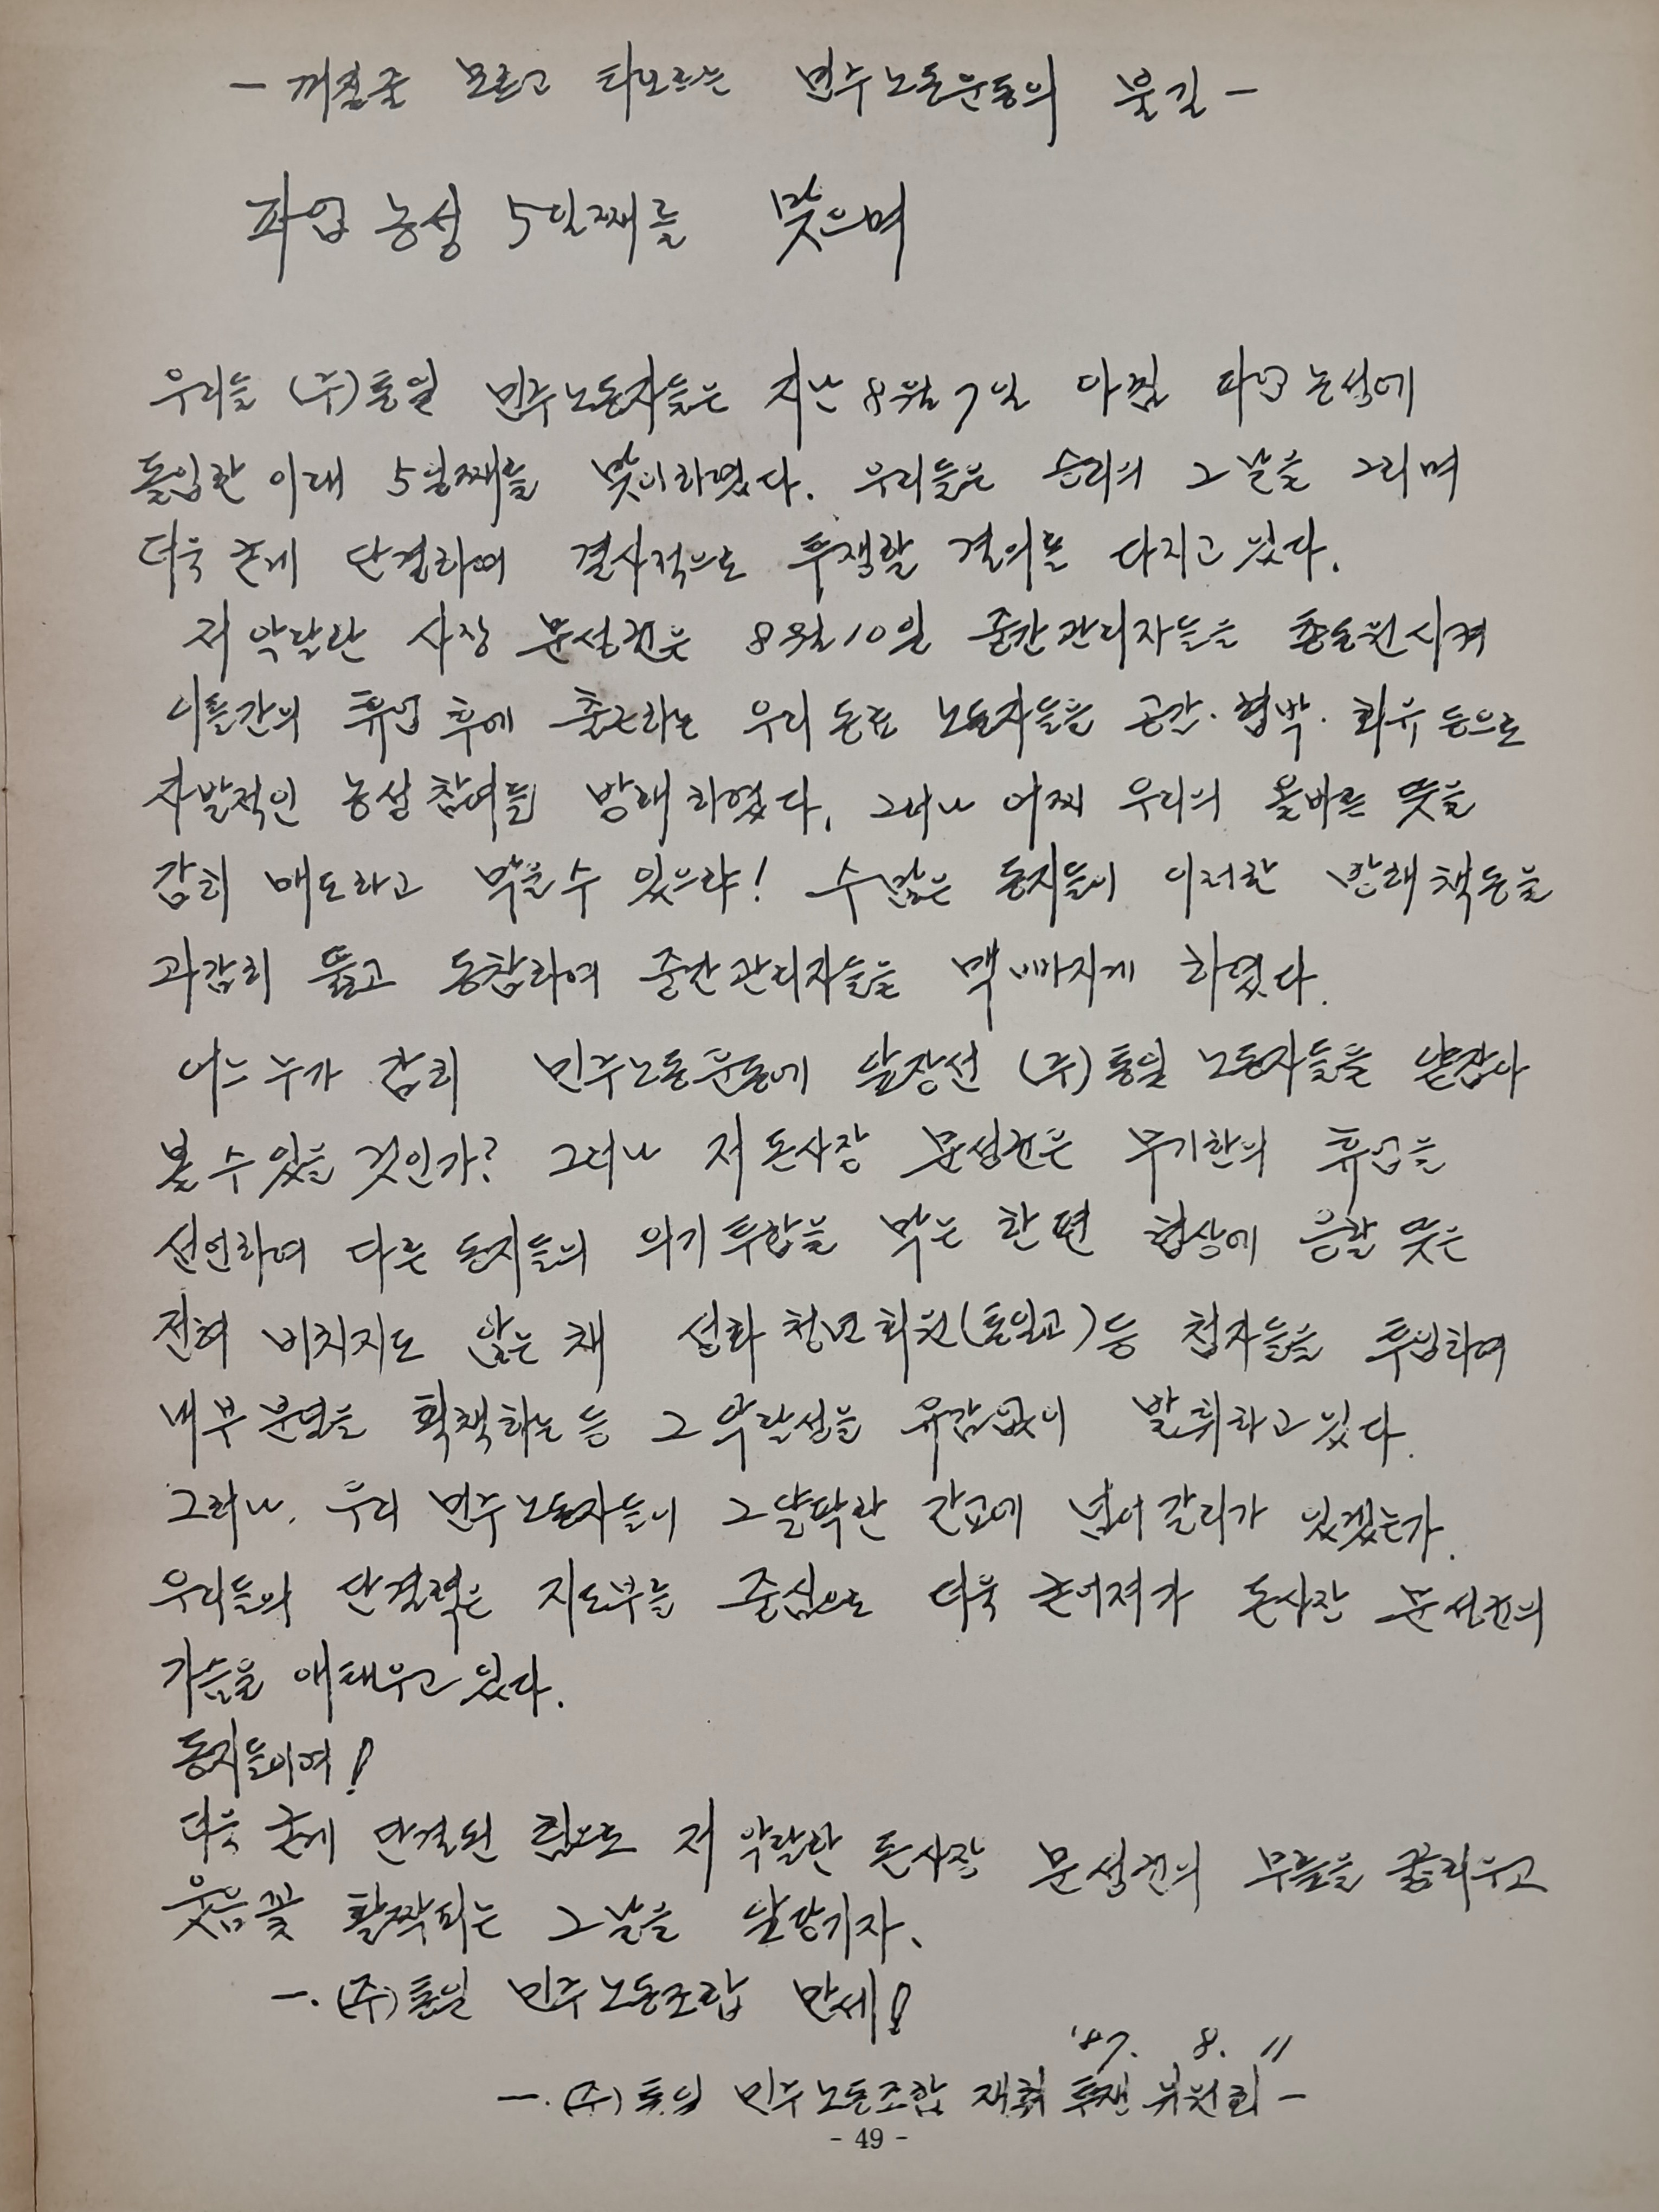 - 꺼질줄 모르고 타오르는 민주노동운동의 불길 -
파업 농성 5일째를 맞으며
우리들 (주)통일 민주노동자들은 지난 8월 7일 아침 파업농성에
돌입한 이래 5일째를 맞이하였다. 우리들은 승리의 그날을 그리며
더욱 굳게 단결하여 결사적으로 투쟁할 결의를 다지고 있다.
저 악랄한 사장 문성균은 8월 10일 중간관리자들을 총동원시켜
이틀간의 휴업 후에 출근하는 우리 동료 노동자들을 공갈·협박·회유 등으로
자발적인 농성참여를 방해하였다. 그러나 어찌 우리의 올바른 뜻을
감히 매도하고 막을 수 있으랴! 수많은 동지들이 이러한 방해책동을
과감히 뚫고 동참하여 중간관리자들을 맥빠지게 하였다.
어느 누가 감히 민주노동운동에 앞장선 (주)통일 노동자들을 얕잡아
볼 수 있을 것인가? 그러나 저 돈사장 문성균은 무기한의 휴업을
선언하여 다른 동지들의 의기투합을 막는 한편 협상에 응할 뜻은
전혀 비치지도 않은 채 성화 청년회원(통일교) 등 첩자들을 투입하여
내부분열을 획책하는 등 그 악랄성을 유감없이 발휘하고 있다.
그러나, 우리 민주노동자들이 그 얄팍한 간교에 넘어갈리가 있겠는가.
우리들의 단결력은 지도부를 중심으로 더욱 굳어져가 돈사장 문성균의
가슴을 애태우고 있다.
동지들이여!
더욱 굳게 단결된 힘으로 저 악랄한 돈사장 문성균의 무릎을 꿇리우고
웃음꽃 활짝피는 그날을 앞당기자.
-. (주)통일 민주노동조합 만세!
'87. 8. 11
-. (주)통일 민주노동조합 쟁취 투쟁 위원회 -
- 49 -